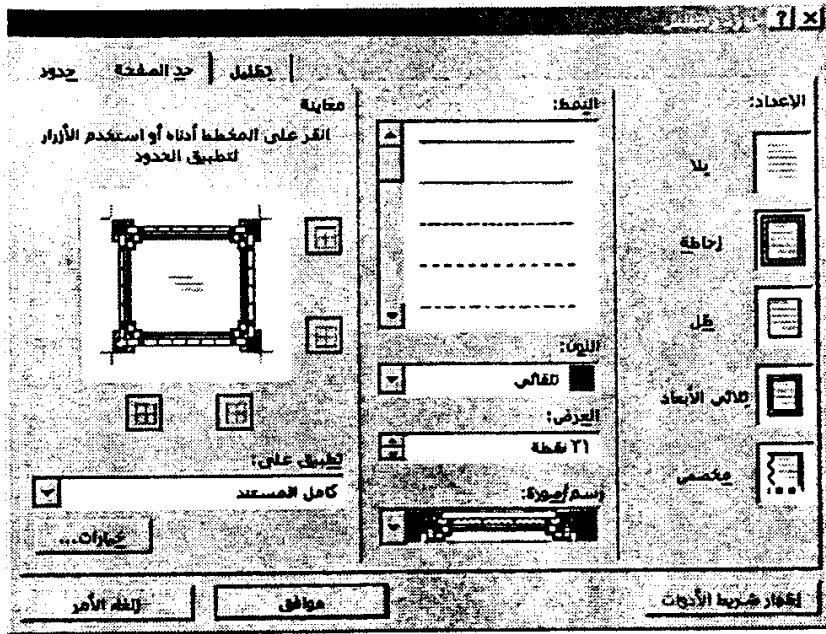 تظليل
حد الصفحة
حدود
الإعداد:
بلا
إحاطة
ظل
ثلاثي الأبعاد
مخصص
النمط:
اللون:
تلقائي
العرض:
٢١ نقطة
رسم/صورة:
معاينة
انقر على المخطط أدناه أو استخدم الأزرار
لتطبيق الحدود
تطبيق على:
كامل المستند
خيارات...
إظهار شريط الأدوات
موافق
إلغاء الأمر